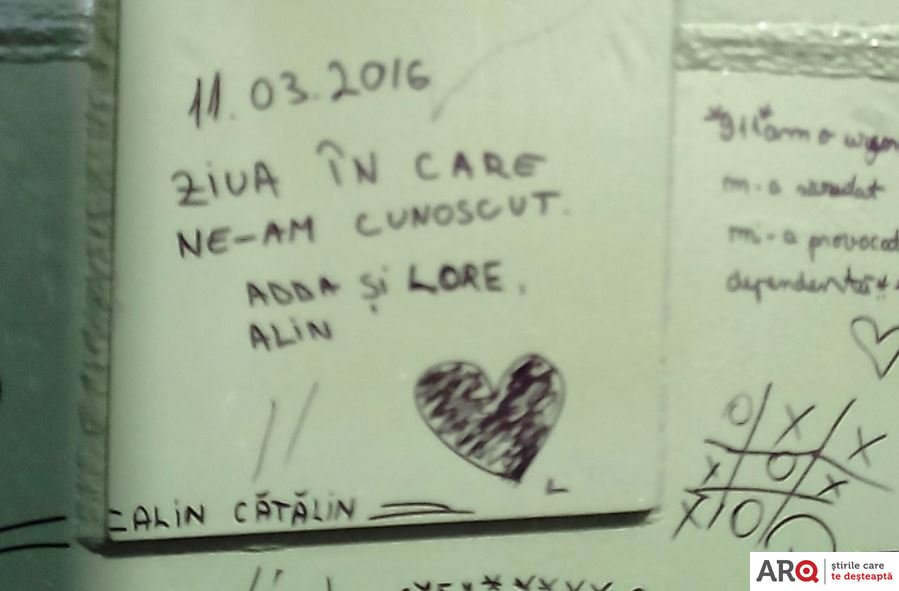 11.03.2016
ZIUA ÎN CARE
NE-AM CUNOSCUT.
ADDA ȘI LORE.
ALIN
L
=ALIN CĂTĂLIN
am o
m-a
mi-a provocat
dependență
O X X
X O X
X O O
ARQ știrile care
te deșteaptă